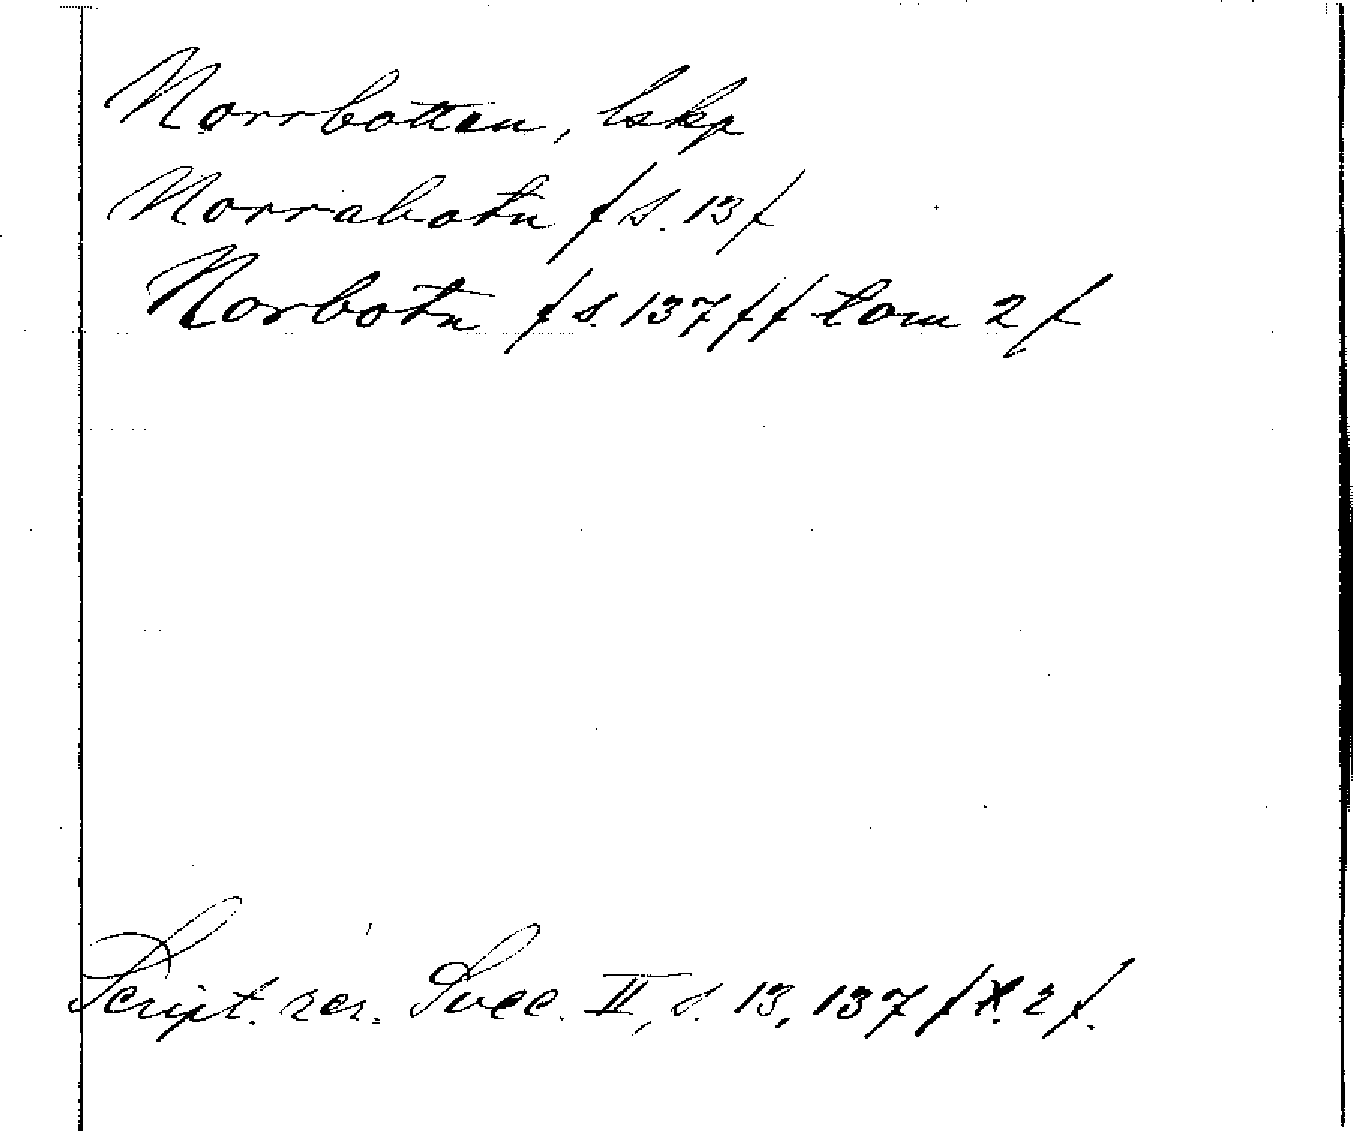 Norrbotten, lskp
Norrabotn / s. 13 /
Norbotn / s. 137 f / tom 2 /
Script. rer. Svec. II, s. 13, 137 f X. 2 f.